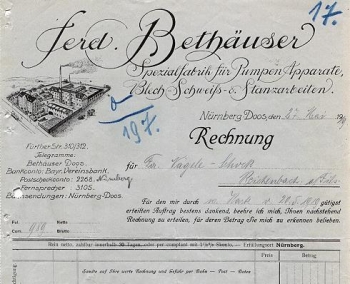 17.
Ferd. Bethäuser
Spezialfabrik für Pumpen Apparate,
Blech-Schweiß- u. Stanzarbeiten.
Nürnberg-Doos, den
197.
Rechnung
Fürther Str. 310/312.
Telegramme:
Bethäuser Doos.
Bankkonto: Bayr. Vereinsbank.
Postscheckkonto: 2268. Nürnberg
Fernsprecher: 3105.
Bahnsendungen: Nürnberg-Doos.
für
Für den mir durch
gütigst
erteilten Auftrag bestens dankend, beehre ich mich, Ihnen nachstehend
Rechnung zu erteilen, für deren Betrag Sie mich zu erkennen belieben.
Fol.
Kette
Corr. 989
Ziel: netto, zahlbar innerhalb 30 Tagen, oder per comptant mit
Skonto. — Erfüllungsort Nürnberg.
Sandte auf Ihre werte Rechnung und Gefahr per Bahn — Post — Boten
Preis
Betrag